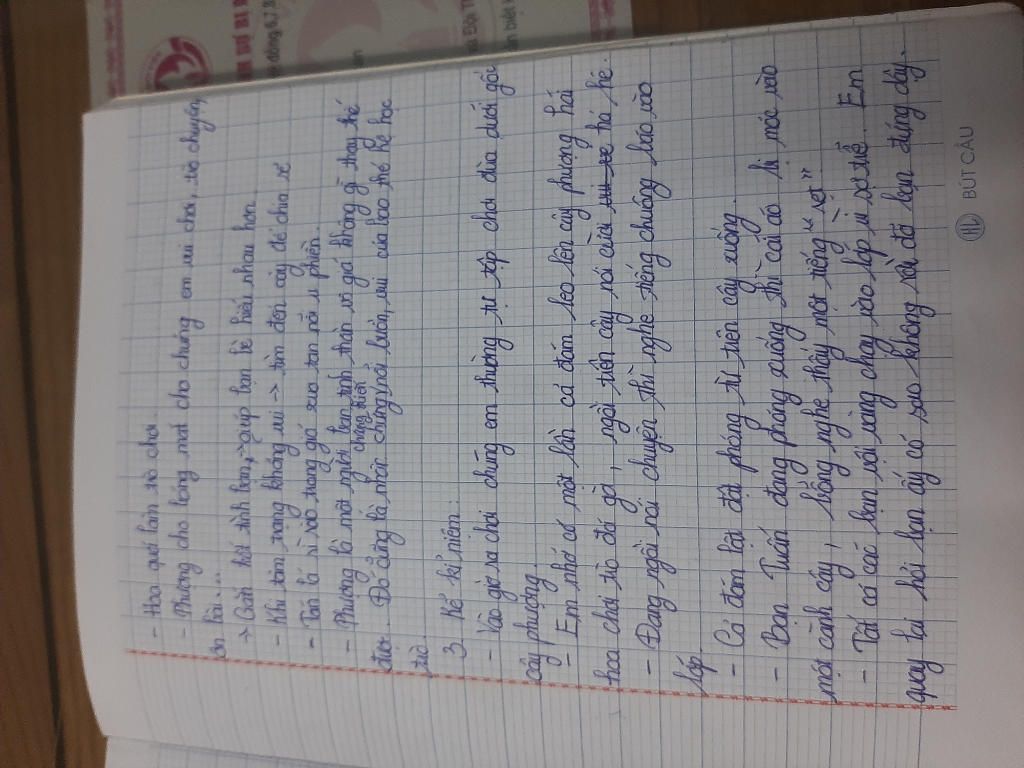 - Hoa quả làm trò chơi.
- Phượng cho bóng mát cho chúng em vui chơi, trò chuyện,
ôn bài...
→ Gắn kết tình bạn, → giúp bạn bè hiểu nhau hơn.
- Khi tâm trạng không vui → tìm đến cây để chia sẻ
- Tán lá rì rào trong gió xua tan nỗi u phiền.
- Phượng là một người bạn tinh thần vô giá không gì thay thế
được. Đó cũng là nhân chứng nỗi buồn, vui của bao thế hệ học
chứng kiến
trò.
3. Kể kỉ niệm:
- Vào giờ ra chơi chúng em thường tụ tập chơi đùa dưới gốc
cây phượng.
- Em nhớ có một lần cả đám leo lên cây phượng hái
hoa chơi trò đá gà, ngồi trên cây nói cười hả hê.
- Đang ngồi nói chuyện thì nghe tiếng chuông báo vào
lớp.
- Cả đám lật đật phóng từ trên cây xuống.
- Bạn Tuấn đang phóng xuống thì cái áo bị móc vào
một cành cây, bỗng nghe thấy một tiếng "rẹt"
- Tất cả các bạn vội vàng chạy vào lớp vì sợ trễ. Em
quay lại hỏi bạn ấy có sao không rồi đỡ bạn đứng dậy.
BÚT CÂU